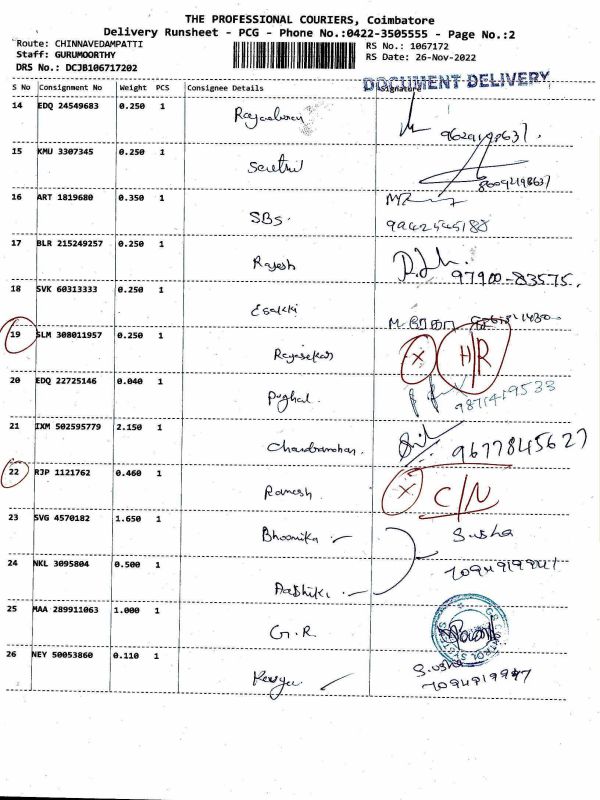 THE PROFESSIONAL COURIERS, Coimbatore
Delivery Runsheet - PCG - Phone No.:0422-3505555 - Page No.:2
Route: CHINNAVEDAMPATTI RS No.: 1067172
Staff: GURUMOORTHY RS Date: 26-Nov-2022
DRS No.: DCJB106717202
DOCUMENT DELIVERY
S No Consignment No Weight PCS Consignee Details Signature
14 EDQ 24549683 0.250 1
15 KMU 3307345 0.250 1 Senthil
16 ART 1819680 0.350 1
SBS. 9942545188
17 BLR 215249257 0.250 1
Rajesh 97900-83575.
18 SVK 60313333 0.250 1
Esakki
19 SLM 308011957 0.250 1
Rajasekar X H/R
20 EDQ 22725146 0.040 1
Pughal. 9871419533
21 IXM 502595779 2.150 1
Chandramohan. 9677845627
22 RJP 1121762 0.460 1
Ramesh. X C/N
23 SVG 4570182 1.650 1
Bhoomika Susha
24 NKL 3095804 0.500 1
25 MAA 289911063 1.000 1
G.R.
26 NEY 50053860 0.110 1
Susha